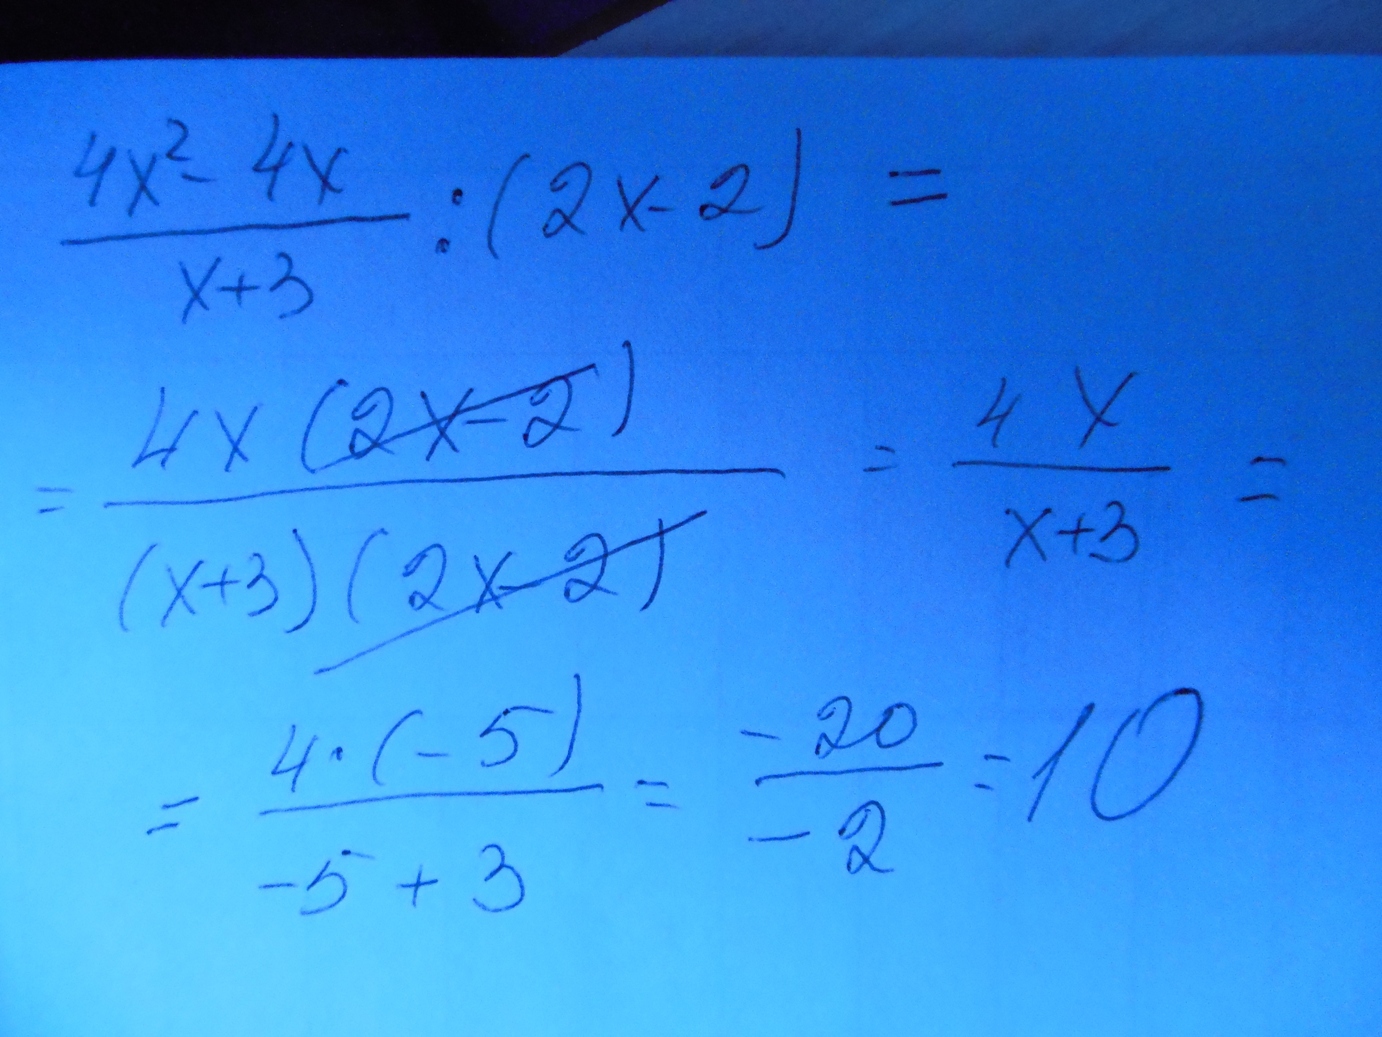 4x² - 4x / x+3 : (2x-2) =
= 4x(2x-2) / (x+3)(2x-2) = 4x / x+3 =
= 4·(-5) / -5+3 = -20 / -2 = 10